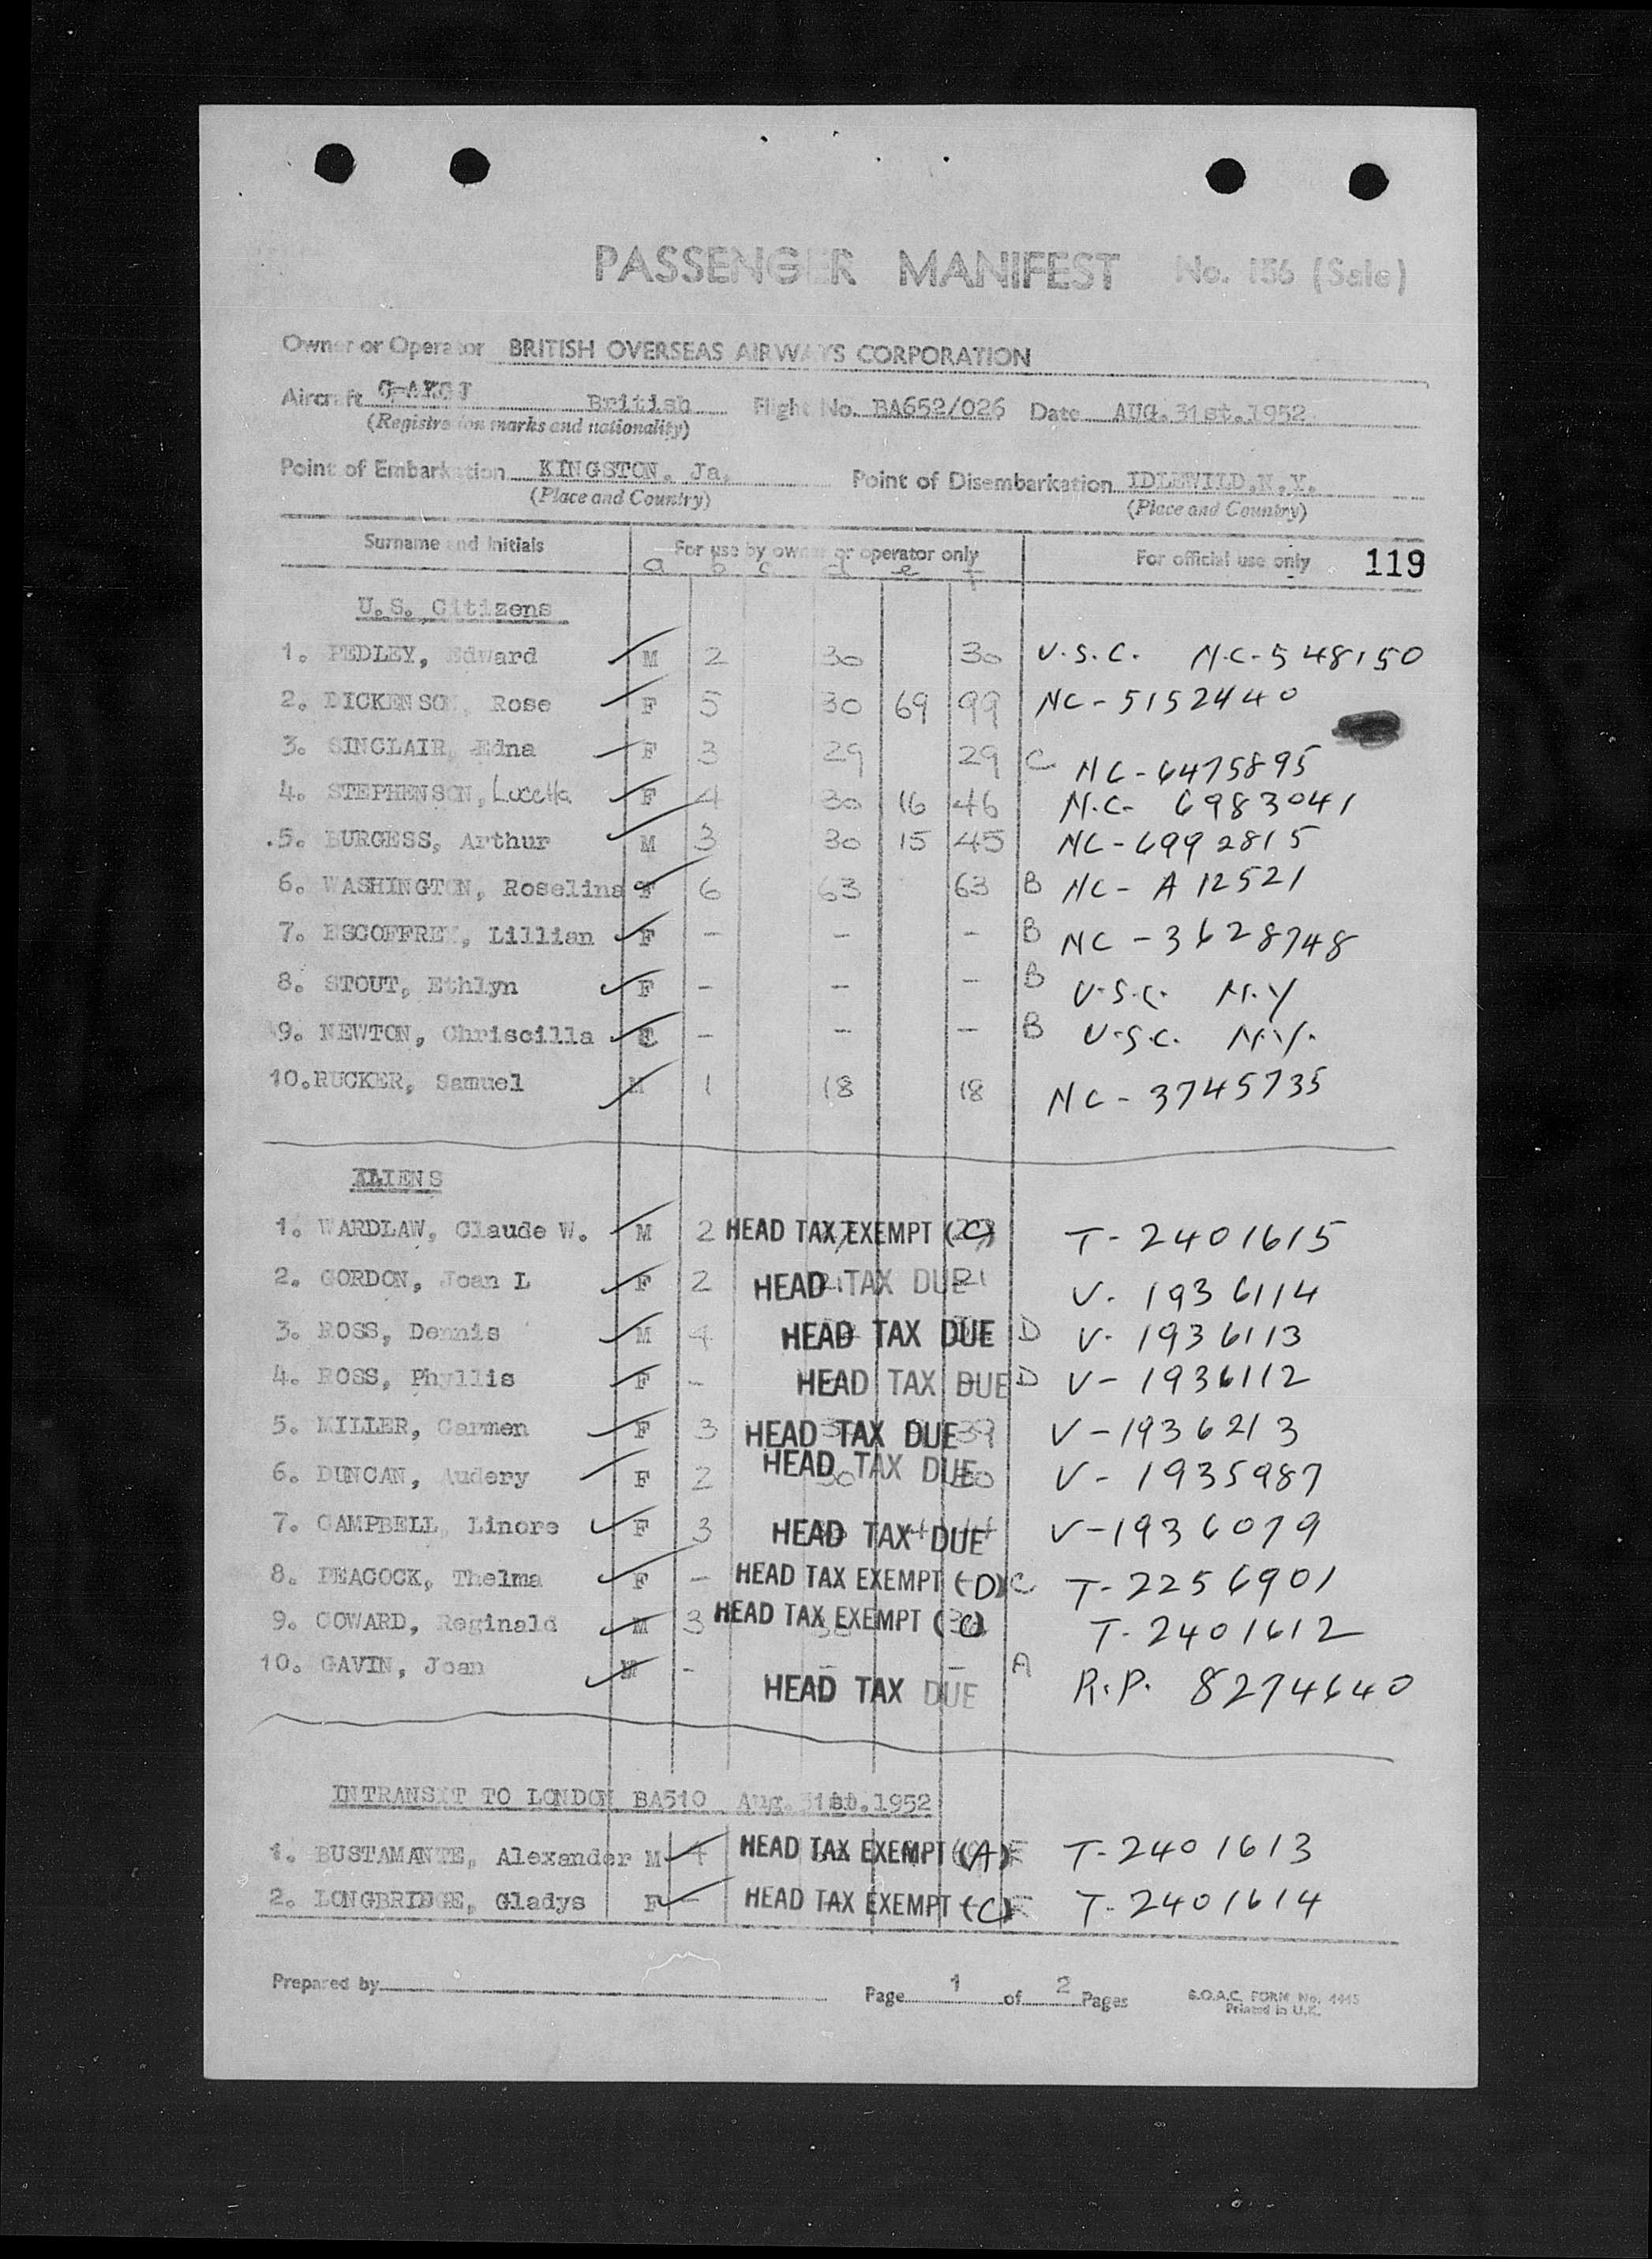 PASSENGER MANIFEST No. 156 (Sale)
Owner or Operator BRITISH OVERSEAS AIRWAYS CORPORATION
Aircraft British Flight No. BA652/026 Date AUG. 31st. 1952
(Registration marks and nationality)
Point of Embarkation KINGSTON. Ja. Point of Disembarkation IDLEWILD.N.Y.
(Place and Country) (Place and Country)
Surname and Initials For use by owner or operator only For official use only 119
a b c d e f
U.S. Citizens
1. PEDLEY, Edward M 2 30 30 U.S.C. N.C-548150
2. DICKENSON, Rose F 5 30 69 99 NC-5152440
3. SINCLAIR, Edna F 3 29 29 C NC-6475895
4. STEPHENSON, Lucetta F 4 30 16 46 N.C- 6983041
5. BURGESS, Arthur M 3 30 15 45 NC-6992815
6. WASHINGTON, Roselina F 6 63 63 B NC- A 12521
7. ESCOFFREY, Lillian F - - - B NC-3628748
8. STOUT, Ethlyn F - - - B U.S.C. N.Y
9. NEWTON, Chriscilla - - - B U.S.C. N.Y.
10. RUCKER, Samuel M 1 18 18 NC-3745735
ALIENS
1. WARDLAW, Claude W. M 2 HEAD TAX EXEMPT (C) T-2401615
2. GORDON, Joan L F 2 HEAD TAX DUE 21 V. 1936114
3. ROSS, Dennis M 4 HEAD TAX DUE D V- 1936113
4. ROSS, Phyllis F - HEAD TAX DUE D V- 1936112
5. MILLER, Carmen F 3 HEAD TAX DUE 39 V-1936213
6. DUNCAN, Audery F 2 HEAD TAX DUE 30 V- 1935987
7. CAMPBELL, Linore F 3 HEAD TAX DUE V-1936079
8. PEACOCK, Thelma F - HEAD TAX EXEMPT (D) C T-2256901
9. COWARD, Reginald M 3 HEAD TAX EXEMPT (C) T-2401612
10. GAVIN, Joan - - - A HEAD TAX DUE R.P. 8274640
INTRANSIT TO LONDON BA510 Aug. 31st. 1952
1. BUSTAMANTE, Alexander M 4 HEAD TAX EXEMPT (A) T-2401613
2. LONGBRIDGE, Gladys F - HEAD TAX EXEMPT (C) T-2401614
Prepared by Page 1 of 2 Pages B.O.A.C. FORM No. 4445
Printed in U.K.